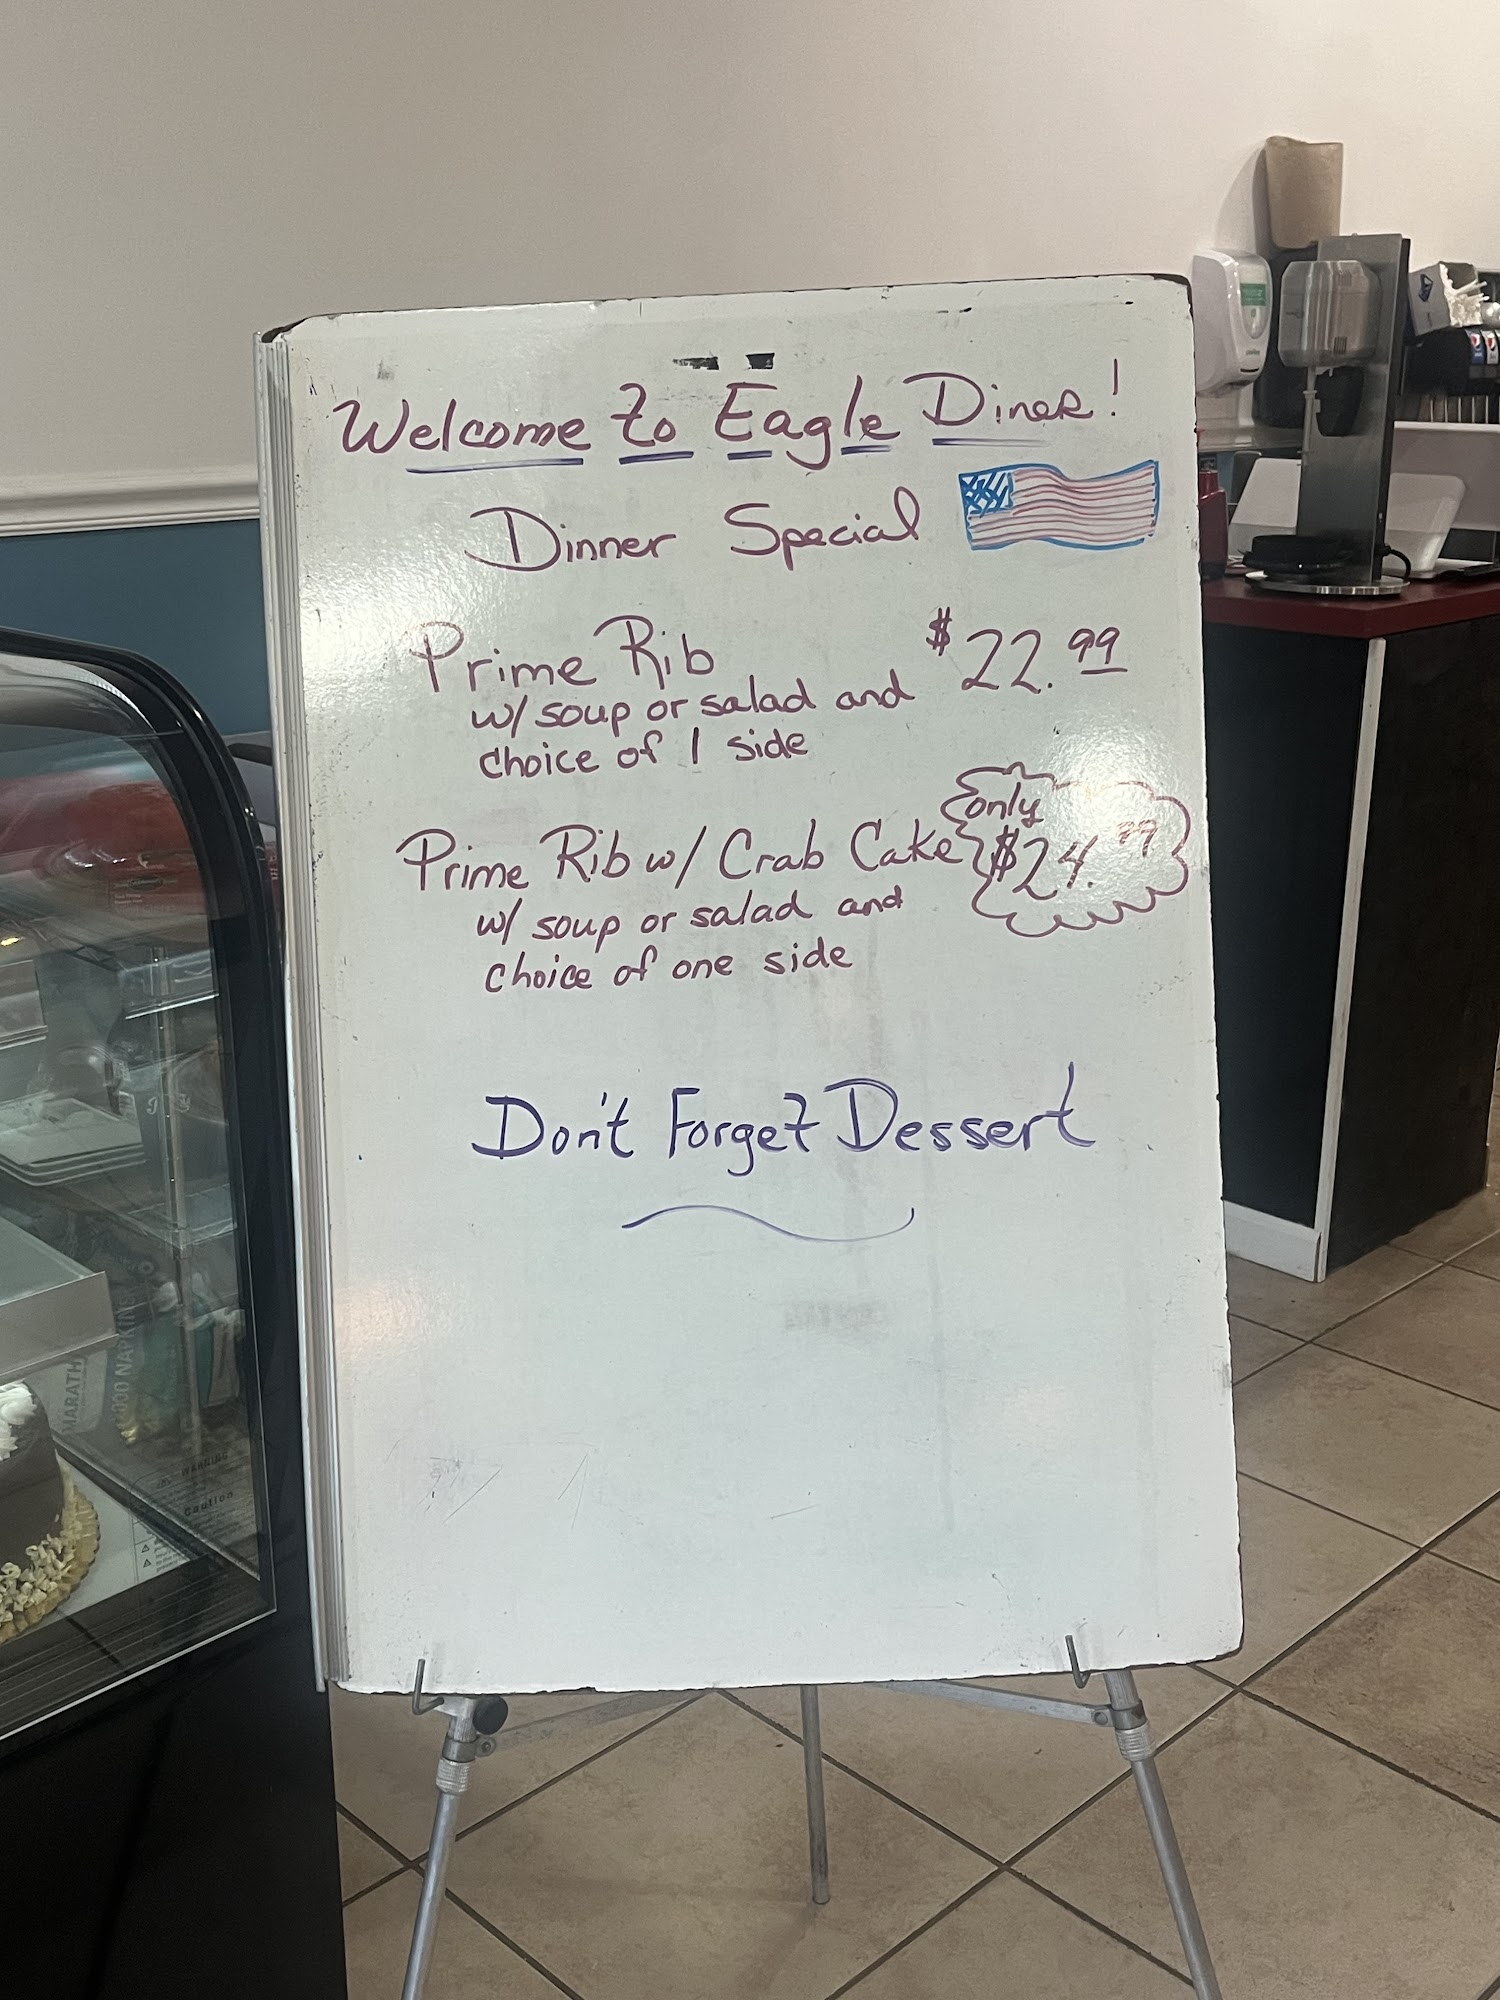 Welcome to Eagle Diner!
Dinner Special
Prime Rib $22.99
w/ soup or salad and
choice of 1 side
only
Prime Rib w/ Crab Cake $24.99
w/ soup or salad and
choice of one side
Don't Forget Dessert
MARATH
NAPKINS
WARNING
Caution